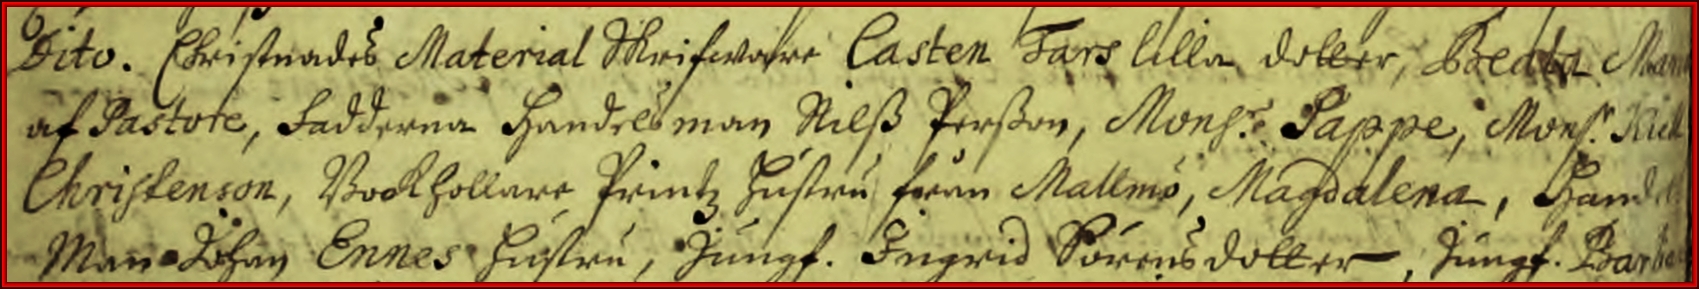 Dito. Christnades Material Skrifware Casten Fars lilla dotter, Beata
af Pastore, Fadderna Handelsman Nilß Perßon, Monsr. Pappe, Monsr.
Christenson, Bookhollare Printz Hustru från Mallmö, Magdalena, Handel
Man Johan Ennes Hustru, Jungf. Ingrid Sörensdotter, Jungf.